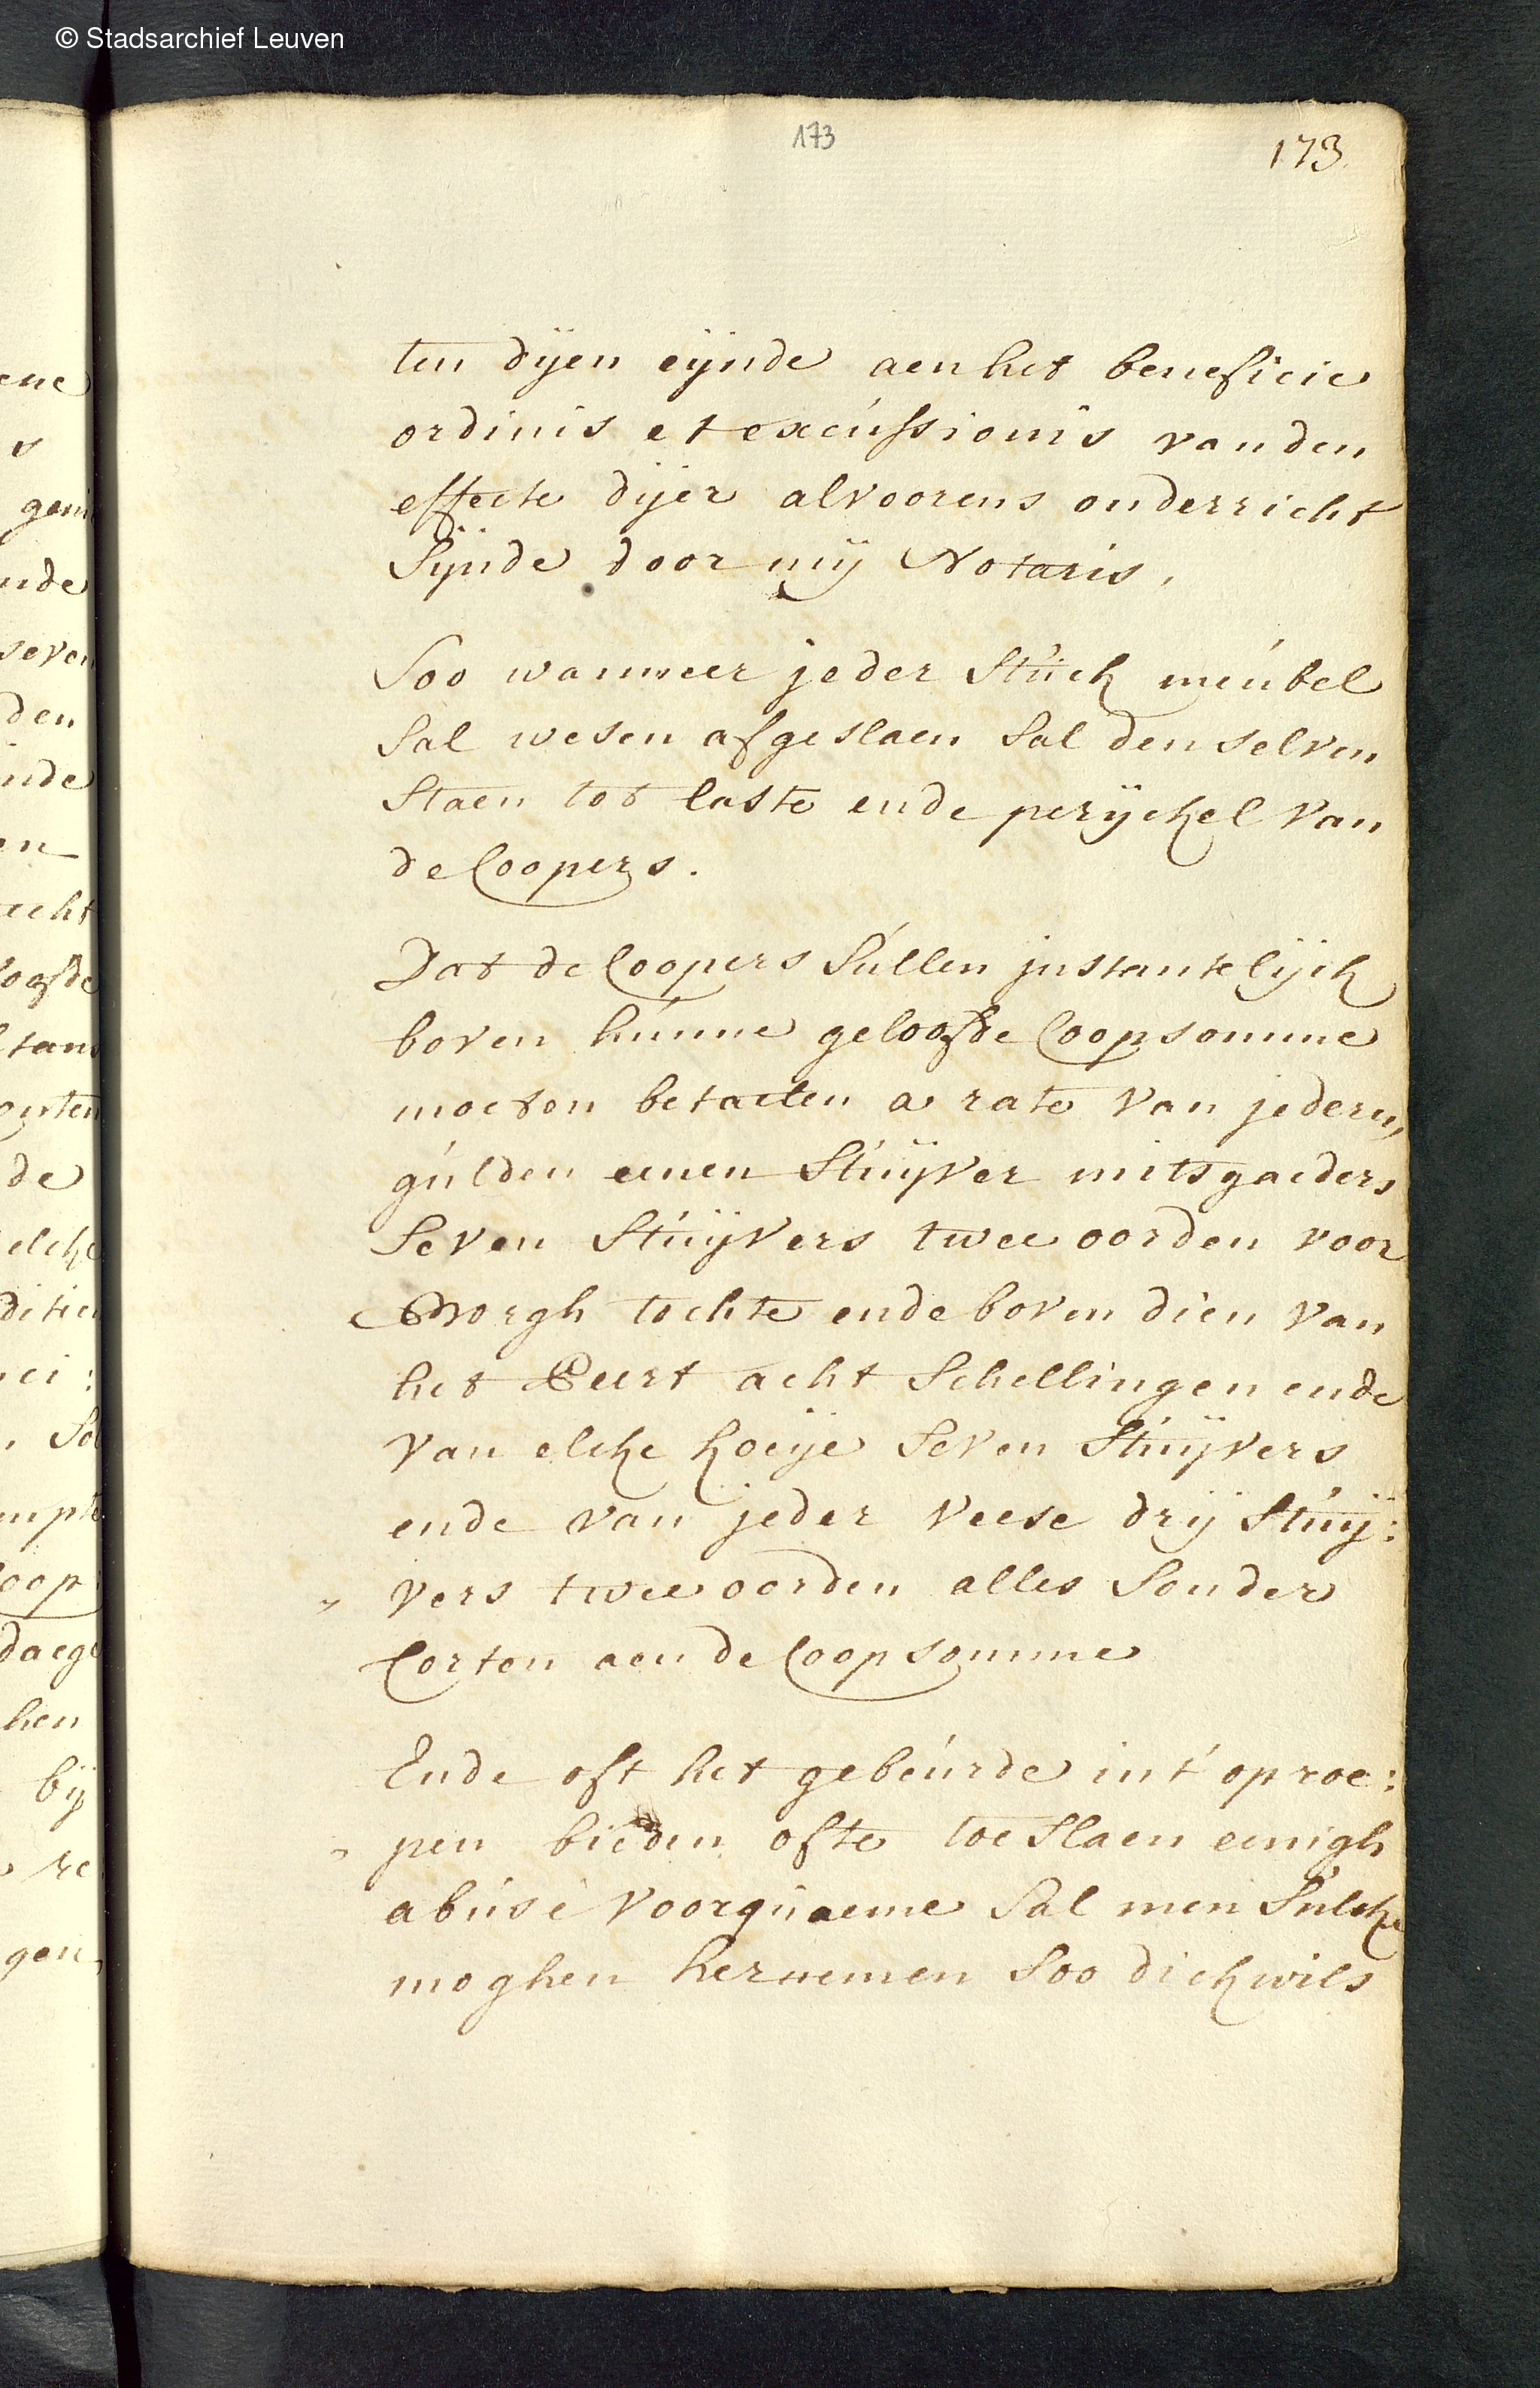 © Stadsarchief Leuven
173
173.
ten dijen eijnde aen het beneficie
ordinis et excússionis van den
effecte dijer alvoorens onderricht
sijnde door mij Notaris,
Soo wanneer jeder stúck meúbel
sal wesen afgeslaen sal den selven
staen tot laste ende perijckel van
de Coopers.
Dat de Coopers súllen jnstantelijck
boven húnne geloofde Coopsomme
moeten betaelen a rate van jederen
gúlden eenen stúijver mitsgaeders
seven stúijvers twee oorden voor
Borgh tochte ende boven dien van
het Peert acht schellingen ende
van elcke koeije seven stúijvers
ende van jeder veese drij stúij:
vers twee oorden alles sonder
Corten aen de Coopsomme
Ende oft het gebeúrde in't oproe:
pen bieden ofte toeslaen eenigh
abúsé voorqúaeme sal men súlckx
moghen hernemen soo dickwils